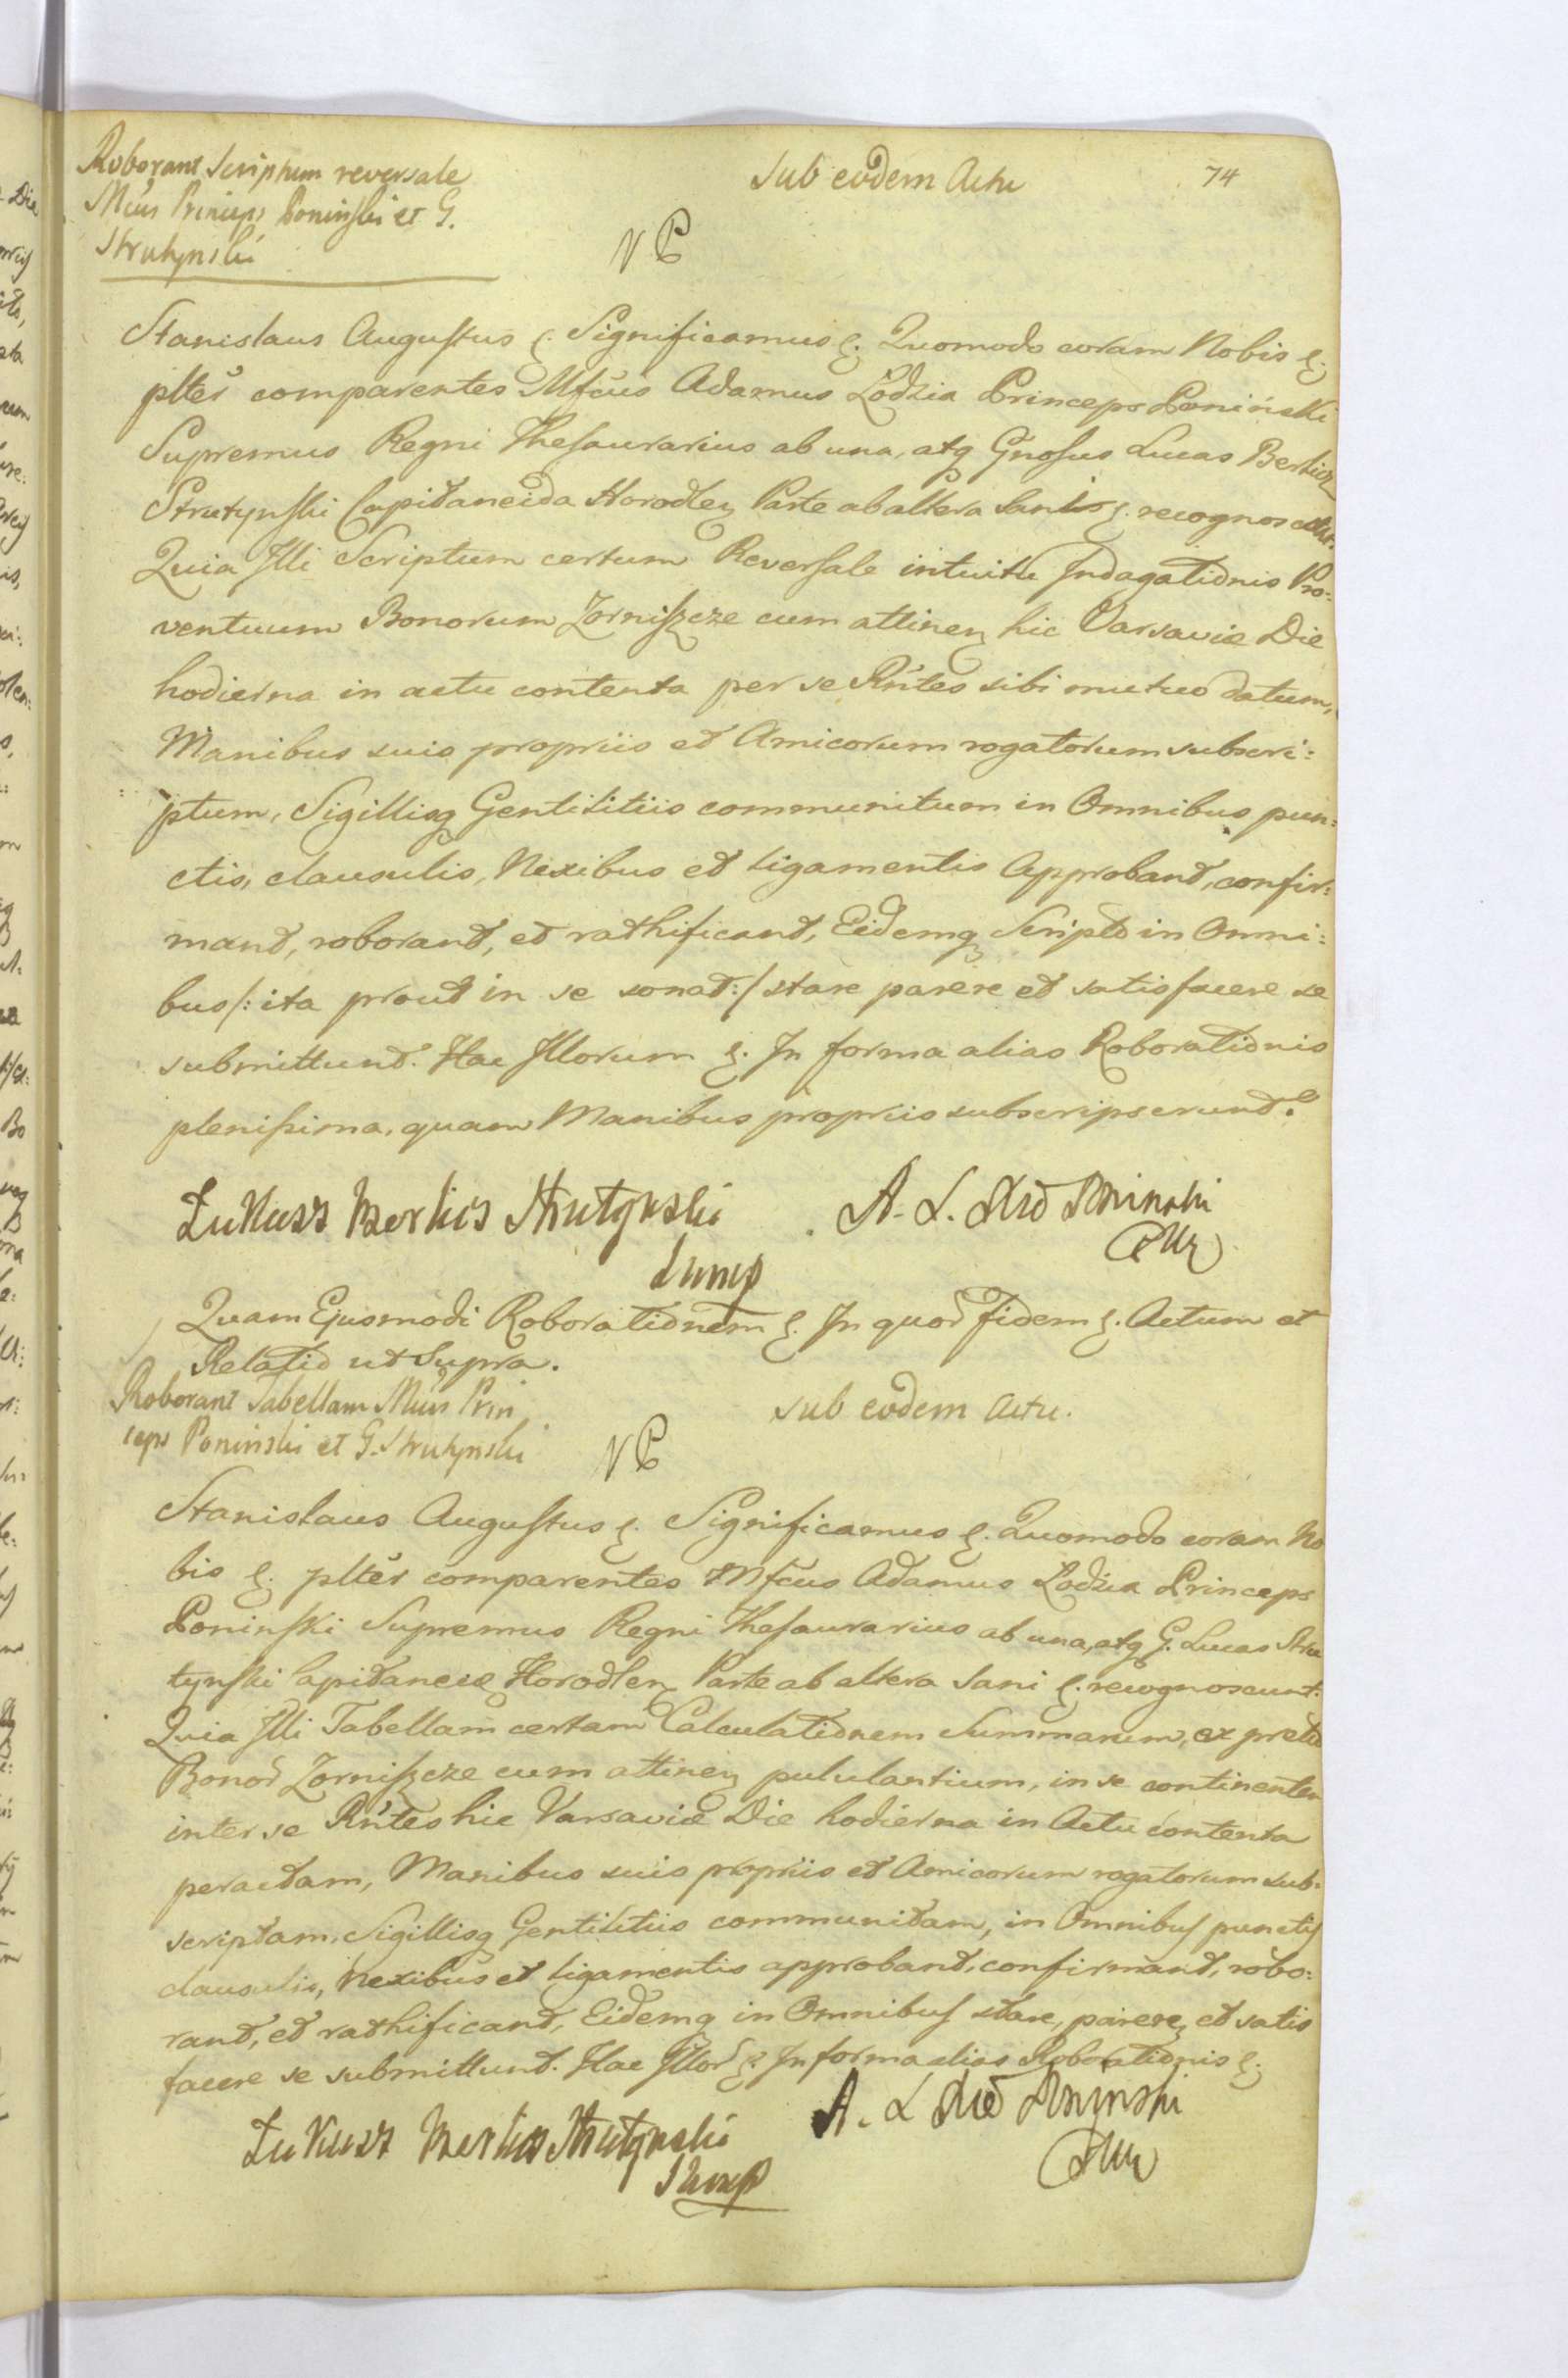 Roborant Scriptum reversale
Mcus Princeps Poninski et G.
Strutynski
Sub eodem Actu
74
NP
Stanislaus Augustus &. Significamus &. Quomodo coram Nobis &.
plter comparentes Mfcus Adamus Lodzia Princeps Poniński
Supremus Regni Thesaurarius ab una, atq Gnosus Lucas Berlicz
Strutynski Capitaneida Horodlen Parte ab altera Sani &. recognoscunt.
Quia Illi Scriptum certum Reversale intuitu Indagationis Pro:
ventuum Bonorum Zorniszcze cum attinen hic Varsaviæ Die
hodierna in actu contenta per se Rntes sibi mutuo datum,
Manibus suis propriis et Amicorum rogatorum subscri:
ptum, Sigillisq Gentilitiis communitum in Omnibus pun:
ctis, clausulis, Nexibus et ligamentis Approbant, confir:
mant, roborant, et rathificant, Eidemq Scripto in Omni:
bus /: ita prout in se sonat :/ stare parere et satisfacere se
submittunt. Hac Illorum &. In forma alias Roborationis
plenissima, quam Manibus propriis subscripserunt.
Lukasz Berlicz Strutynski
A. L. Poninski
Quam Ejusmodi Roborationem &. In quor fidem &. Actum et
Relatio ut Supra.
Roborant Tabellam Mcus Prin
ceps Poninski et G. Strutynski
Sub eodem Actu.
NP
Stanislaus Augustus &. Significamus &. Quomodo coram No
bis &. plter comparentes Mfcus Adamus Lodzia Princeps
Poninski Supremus Regni Thesaurarius ab una, atq G. Lucas Stru
tynski Capitaneæ Horodlen Parte ab altera Sani &. recognoscunt.
Quia Illi Tabellam certam Calculationem Summarum, ex pretio
Bonor Zorniszcze cum attinen pululantium, in se continentem
inter se Rntes hic Varsaviæ Die hodierna in Actu contenta
peractam, Manibus suis propriis et Amicorum rogatorum sub:
scriptam, Sigillisq Gentilitiis communitam, in Omnibus punctis
clausulis, Nexibus et ligamentis approbant, confirmant, robo:
rant, et rathificant, Eidemq in Omnibus stare, parere, et satis
facere se submittunt. Hac Illor &. In forma alias Roborationis &.
Lukasz Berlicz Strutynski
A. L. Poninski